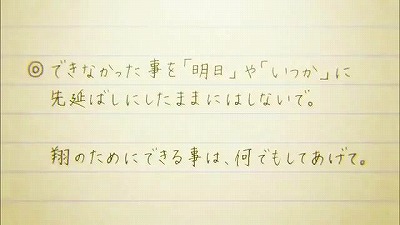 ◎できなかった事を「明日」や「いつか」に
先延ばしにしたままにはしないで。
翔のためにできる事は、何でもしてあげて。